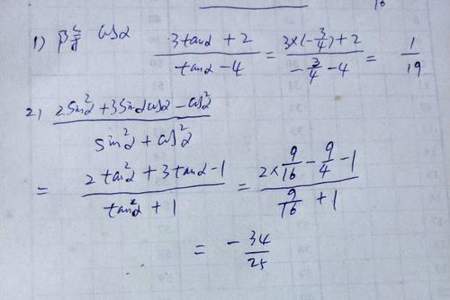 1) 除 cosα (3tanα + 2)/(tanα - 4) = (3×(-3/4)+2)/(-3/4 - 4) = 1/19
2) (2sin²α + 3sinαcosα - cos²α)/(sin²α + cos²α)
= (2tan²α + 3tanα - 1)/(tan²α + 1) = (2×9/16 - 9/4 - 1)/(9/16 + 1)
= -34/25